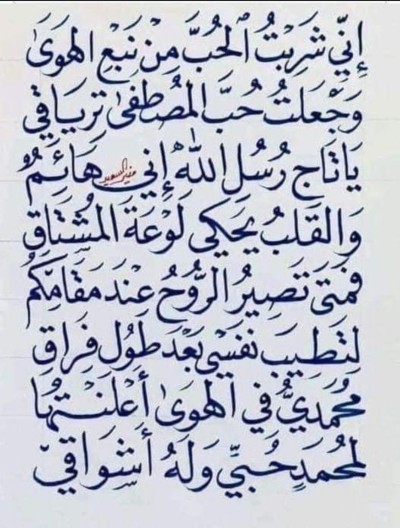 إِنِّي شَرِبْتُ الْحُبَّ مِنْ نَبْعِ الْهَوَىٰ
وَجَعَلْتُ حُبَّ الْمُصْطَفَىٰ تِرْيَاقِي
يَا تَاجَ رُسُلِ اللّٰهِ إِنِّي هَائِمٌ
وَالْقَلْبُ يَحْكِي لَوْعَةَ الْمُشْتَاقِ
فَمَتَىٰ تَصِيرُ الرُّوحُ عِنْدَ مَقَامِكُمْ
لِتَطِيبَ نَفْسِي بَعْدَ طُولِ فِرَاقِ
مُحَمَّدِيٌّ فِي الْهَوَىٰ أَعْلَنْتُهَا
لِمُحَمَّدٍ حُبِّي وَلَهُ أَشْوَاقِي